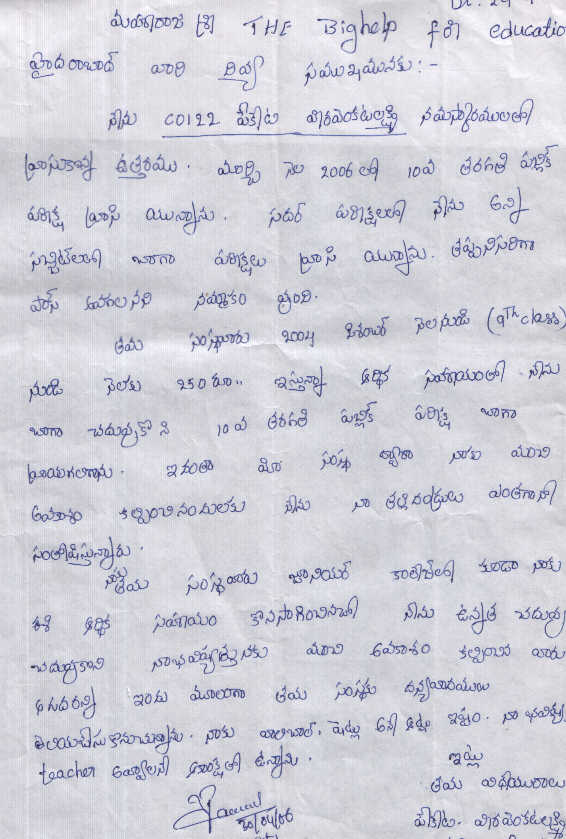 Dt. 29
మహారాజశ్రీ THE Bighelp for educatio
హైదరాబాద్ వారి దివ్య సముఖమునకు:-
నేను C0122 పేకేటి వీరవెంకటలక్ష్మి నమస్కారములతో
వ్రాసుకొన్న ఉత్తరము. మార్చి నెల 2006 లో 10వ తరగతి పబ్లిక్
పరీక్ష వ్రాసి యున్నాను. సదర్ పరీక్షలలో నేను అన్ని
సబ్జెక్ట్‌లలో బాగా పరీక్షలు వ్రాసి యున్నాను. తప్పనిసరిగా
పాస్ కావాలనని నమ్మకం వుంది.
తమ సంస్థవారు 2004 డిశెంబర్ నెల నుండి (9th class)
నుండి నెలకు 250 రూ.. ఇస్తున్నా ఆర్థిక సహాయంతో నేను
బాగా చదువుకొని 10వ తరగతి పబ్లిక్ పరీక్ష బాగా
వ్రాయగలిగాను. ఇదంతా మీ సంస్థ ద్వారా నాకు మంచి
అవకాశం కల్పించినందులకు నేను నా తల్లిదండ్రులు ఎంతగానో
సంతోషిస్తున్నారు.
నాకు తమ సంస్థవారు జూనియర్ కాలేజిలో కూడా నాకు
ఈ ఆర్థిక సహాయం కొనసాగించినచో నేను ఉన్నత చదువు
చదువుకొని నా భవిష్యత్తునకు మంచి అవకాశం కల్పించిన వారు
అగుదురని ఇందు మూలంగా తమ సంస్థకు ధన్యవాదములు
తెలియచేసుకొనుచున్నాను. నాకు వాలీబాల్, షెట్లు అనే ఆటలు ఇష్టం. నా భవిష్య
teacher అవ్వాలని ఆకాంక్షతో ఉన్నాను.
ఇట్లు
తమ విధేయురాలు
20/04/06
పేకేటి. వీరవెంకటలక్ష్మి